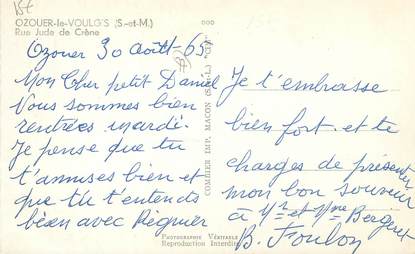 OZOUER-le-VOULGIS (S.-et-M.)
Rue Jude de Crène
Ozouer 30 août-65
Mon Cher petit Daniel
Vous sommes bien
rentrées mardi.
Je pense que tu
t'amuses bien et
que tu t'entends
bien avec Régnier
COMBIER IMP. MACON (S.-&-L.) "CIM"
Je t'embrasse
bien fort et te
charges de présenter
mon bon souvenir
à Mr et Mme
B. Foulon
PHOTOGRAPHIE VÉRITABLE
Reproduction Interdite